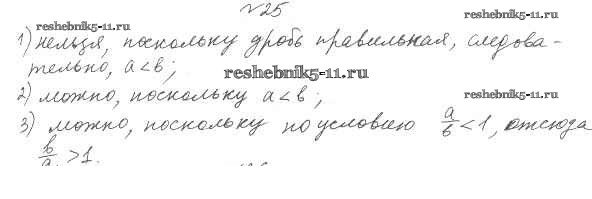 №25
reshebnik5-11.ru
1) нельзя, поскольку дробь правильная, следова-
тельно, a<b;
reshebnik5-11.ru
2) можно, поскольку a<b;
reshebnik5-11.ru
3) можно, поскольку по условию a/b<1, отсюда
b/a>1.